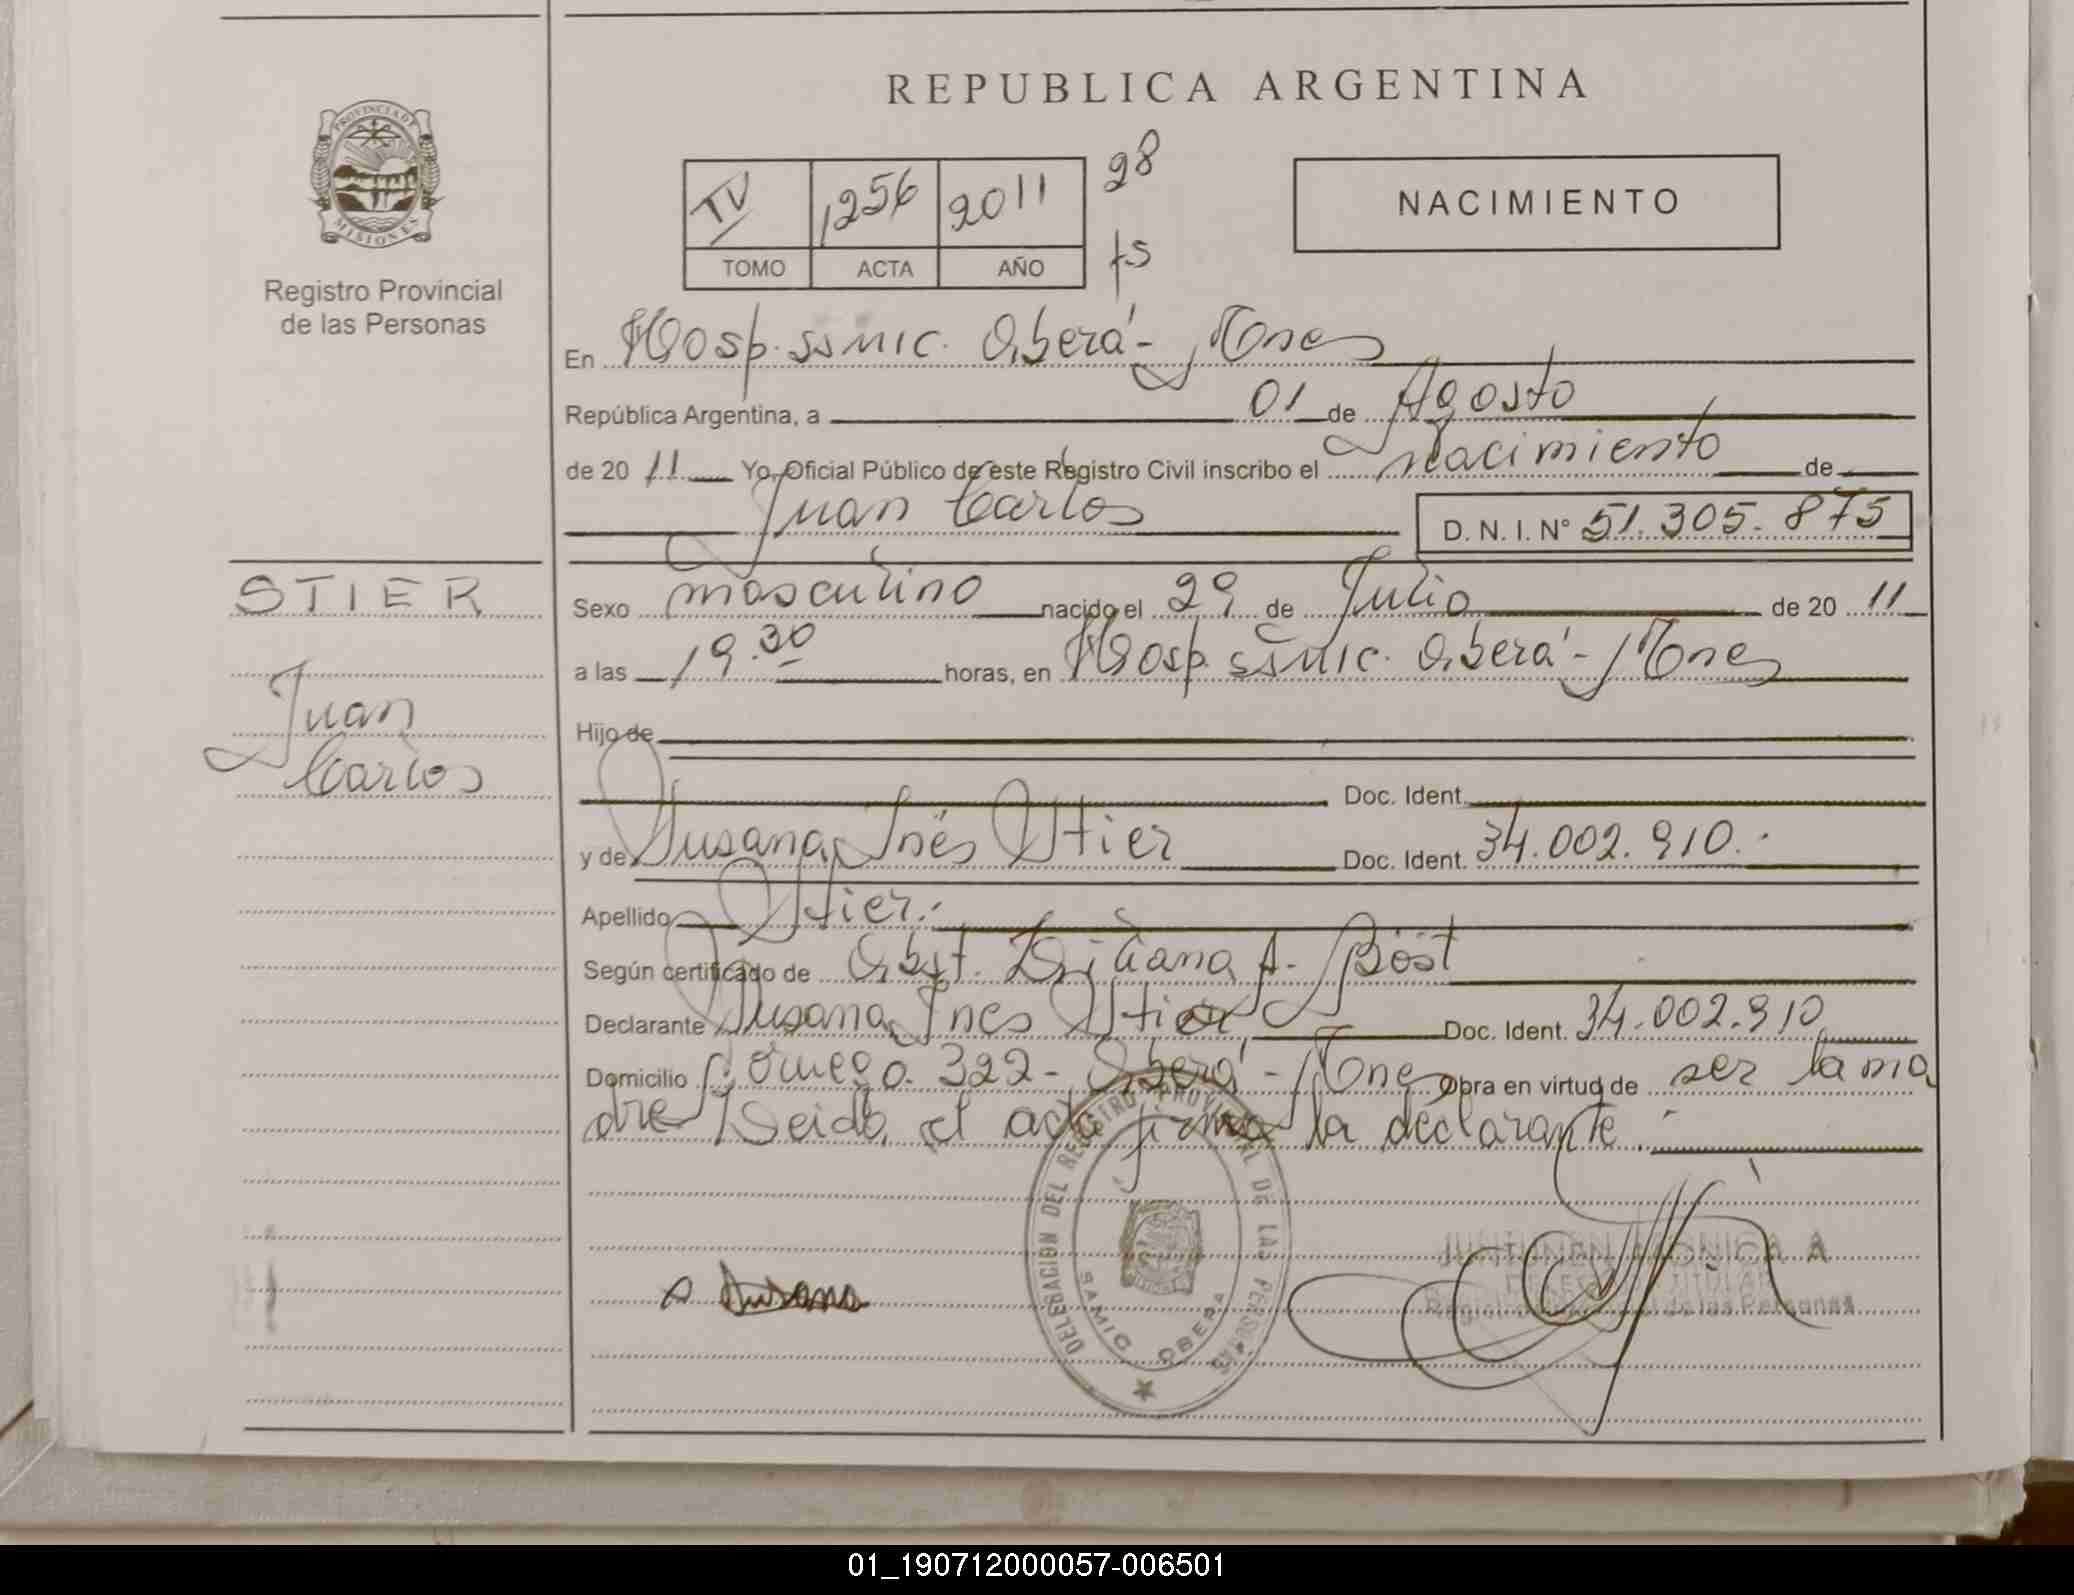 REPUBLICA ARGENTINA
PROVINCIA DE MISIONES
Registro Provincial
de las Personas
TV 1256 2011 98
TOMO ACTA AÑO fs
NACIMIENTO
En Hosp. ssmic. Oberá - Mnes
República Argentina, a 01 de Agosto
de 20 11 Yo, Oficial Público de este Registro Civil inscribo el nacimiento de
Juan Carlos D. N. I. N° 51.305.875
STIER
Juan
Carlos
Sexo masculino nacido el 29 de Julio de 20 11
a las 19.30 horas, en Hosp. ssmic. Oberá - Mnes
Hijo de
Doc. Ident.
y de Susana Inés Stier Doc. Ident. 34.002.910.-
Apellido Stier.-
Según certificado de Obst. A. Bost
Declarante Susana Ines Stier Doc. Ident. 34.002.910
Domicilio 322 - Oberá - Mnes Obra en virtud de ser la ma
dre Leido el acta firma la declarante.-
Susana
DELEGACION DEL REGISTRO PROVINCIAL DE LAS PERSONAS
SAMIC OBERA
JUNTUNEN MONICA A
DELEGADA TITULAR
Registro Provincial de las Personas
01_190712000057-006501